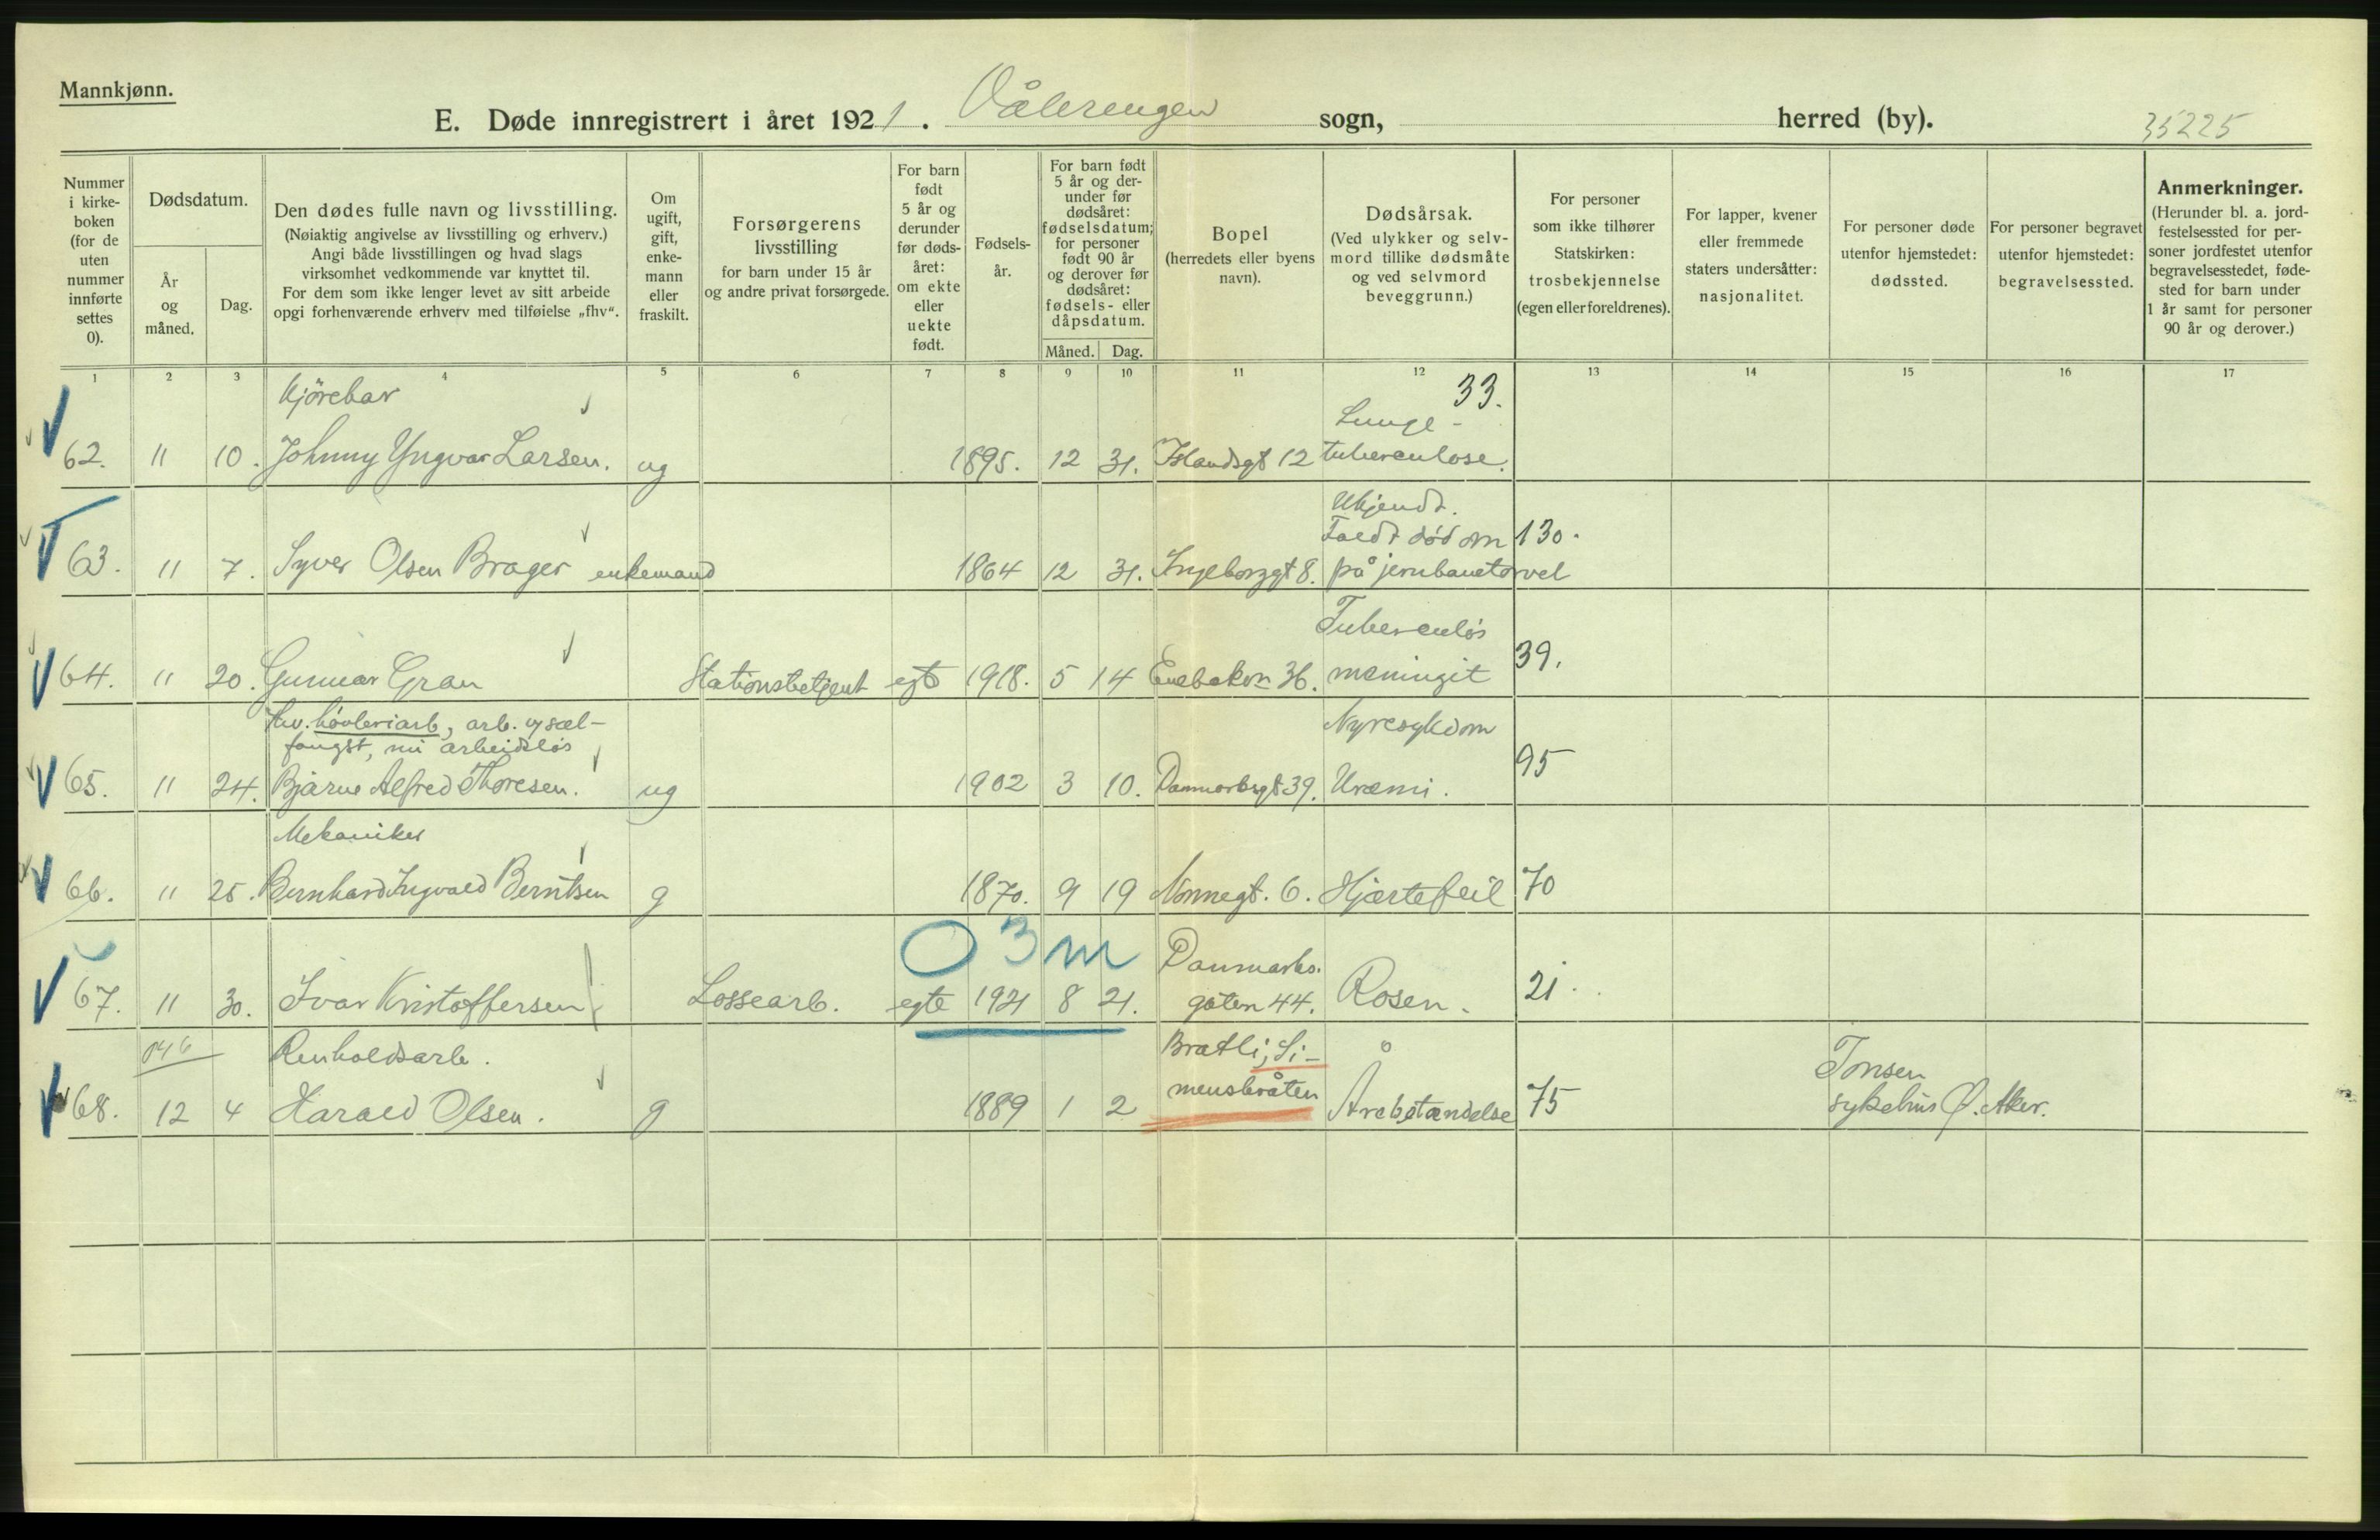 Mannkjønn.
E. Døde innregistrert i året 1921. Vålerengen sogn, herred (by). 35225
Nummer
i kirke-
boken
(for de
uten
nummer
innførte
settes
0).
Dødsdatum.
År
og
måned.
Dag.
Den dødes fulle navn og livsstilling.
(Nøiaktig angivelse av livsstilling og erhverv.)
Angi både livsstillingen og hvad slags
virksomhet vedkommende var knyttet til.
For dem som ikke lenger levet av sitt arbeide
opgi forhenværende erhverv med tilføielse „fhv“.
Om
ugift,
gift,
enke-
mann
eller
fraskilt.
Forsørgerens
livsstilling
for barn under 15 år
og andre privat forsørgede.
For barn
født
5 år og
derunder
før døds-
året:
om ekte
eller
uekte
født.
Fødsels-
år.
For barn født
5 år og der-
under før
dødsåret:
fødselsdatum;
for personer
født 90 år
og derover før
dødsåret:
fødsels- eller
dåpsdatum.
Måned. Dag.
Bopel
(herredets eller byens
navn).
Dødsårsak.
(Ved ulykker og selv-
mord tillike dødsmåte
og ved selvmord
beveggrunn.)
For personer
som ikke tilhører
Statskirken:
trosbekjennelse
(egen eller foreldrenes).
For lapper, kvener
eller fremmede
staters undersåtter:
nasjonalitet.
For personer døde
utenfor hjemstedet:
dødssted.
For personer begravet
utenfor hjemstedet:
begravelsessted.
Anmerkninger.
(Herunder bl. a. jord-
festelsessted for per-
soner jordfestet utenfor
begravelsesstedet, føde-
sted for barn under
1 år samt for personer
90 år og derover.)
1 2 3 4 5 6 7 8 9 10 11 12 13 14 15 16 17
Kjørekar 33.
Lunge-
62. 11 10. Johnny Yngvar Larsen. ug 1895. 12 31. Islandsgt 12 tuberculose.
Ukjendt.
Faldt død om 130.
63. 11 7. Syver Olsen Brager enkemand 1864 12 31. Ingeborggt 8. på jernbanetorvet
Tuberculøs
64. 11 20. Gunnar Gran Stationsbetjent egt 1918. 5 14 Enebakkv. 36. meningit 39.
fhv. høvleriarb, arb. v/ sæl- Nyresykdom
fangst, nu arbeidsløs
65. 11 24. Bjarne Alfred Thoresen. ug 1902 3 10. Danmarksgt 39. Uræmi. 95
Mekaniker
66. 11 25. Bernhard Ingvald Berntsen g 1870. 9 19 Nonnegt. 6. Hjertefeil 70
0 3 m Danmarks.
67. 11 30. Ivar Kristoffersen Lossearb. egte 1921 8 21. gaten 44. Rosen. 21.
046 Renholdsarb. Bratli, Si- Tonsen
68. 12 4 Harald Olsen. g 1889 1 2 mensbråten Årebetændelse 75 sykehus Ø. Aker.